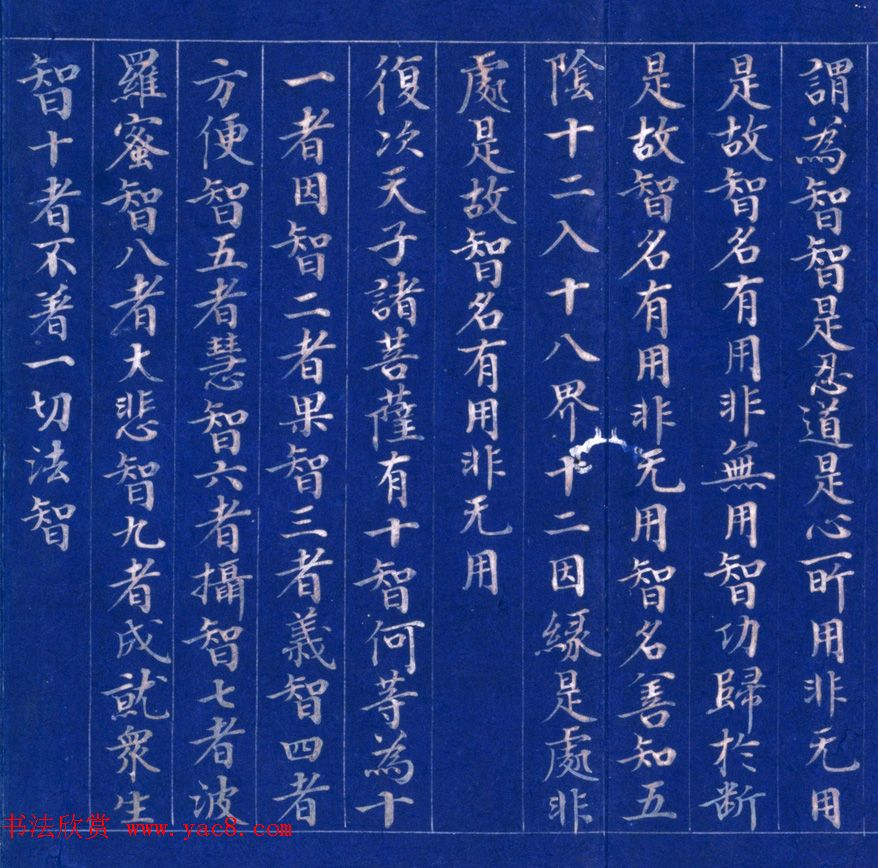 謂為智智是忍道是心所用非无用
是故智名有用非無用智功歸於断
是故智名有用非无用智名善知五
陰十二入十八界十二因緣是處非
處是故智名有用非无用
復次天子諸菩薩有十智何等為十
一者因智二者果智三者義智四者
方便智五者慧智六者攝智七者波
羅蜜智八者大悲智九者成就衆生
智十者不著一切法智
书法欣赏 www.yac8.com